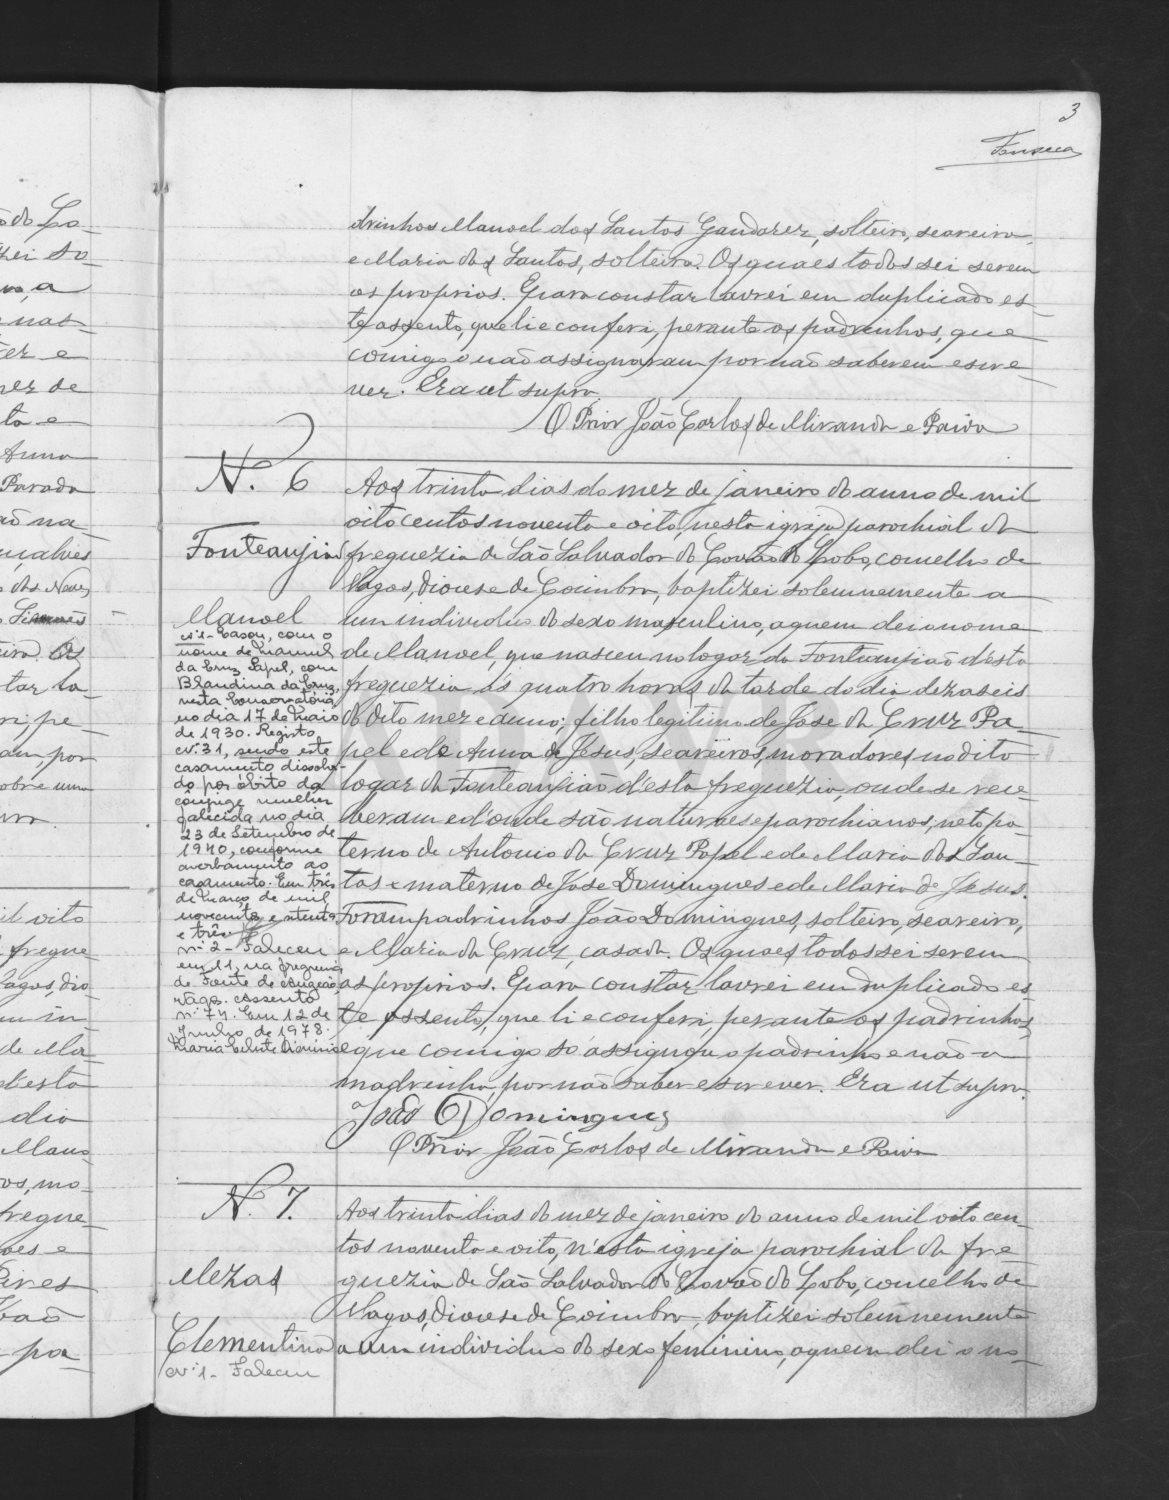 3
Fonseca
drinhos Manoel dos Santos Gandarez, solteiro, seareiro,
e Maria dos Santos, solteira. Os quaes todos sei serem
os proprios. E para constar lavrei em duplicado es-
te assento, que li e conferi, perante os padrinhos, que
comigo não assignaram por não saberem escre-
ver. Era ut supra.
O Prior João Carlos de Miranda e Paiva
N. 6
Fonteangião
Manoel
Aos trinta dias do mez de janeiro do anno de mil
oito centos noventa e oito, nesta igreja parochial da
freguezia de São Salvador do Covão do Lobo, concelho de
Vagos, diocese de Coimbra, baptizei solemnemente a
um individuo do sexo masculino, a quem dei o nome
de Manoel, que nasceu no logar da Fonteangião d'esta
freguezia ás quatro horas da tarde do dia dezaseis
do dito mez e anno; filho legitimo de José da Cruz Pa-
pel e de Anna de Jesus, seareiros, moradores no dito
logar da Fonteangião d'esta freguezia, onde se rece-
beram e d'onde são naturaes e parochianos, neto pa-
terno de Antonio da Cruz Papel e de Maria dos San-
tos e materno de José Domingues e de Maria de Jesus.
Foram padrinhos João Domingues, solteiro, seareiro,
e Maria da Cruz, casada. Os quaes todos sei serem
os proprios. E para constar lavrei em duplicado es-
te assento, que li e conferi, perante os padrinhos,
e que comigo só assignou o padrinho e não a
madrinha, por não saber escrever. Era ut supra.
João Domingues
O Prior João Carlos de Miranda e Paiva
nº 1 - Casou, com o
nome de Manuel
da Cruz Papel, com
Blandina da Cruz,
nesta Conservatória,
no dia 17 de Maio
de 1930. Registo
nº 31, sendo este
casamento dissolvi-
do por óbito do
cônjuge mulher
falecida no dia
23 de Setembro de
1940, conforme
averbamento ao
casamento. Em três
de Março de mil
novecentos e setenta
e três
nº 2 - Faleceu
em 11, na freguesia
de Fonte de Angeão,
Vagos. Assento
nº 74. Em 12 de
Junho de 1978.
N. 7.
Mezas
Clementina
nº 1 - Faleceu
Aos trinta dias do mez de janeiro do anno de mil oito cen-
tos noventa e oito, n'esta igreja parochial da fre
guezia de São Salvador do Covão do Lobo, concelho de
Vagos, diocese de Coimbra, baptizei solemnemente
a um individuo do sexo feminino, a quem dei o no-